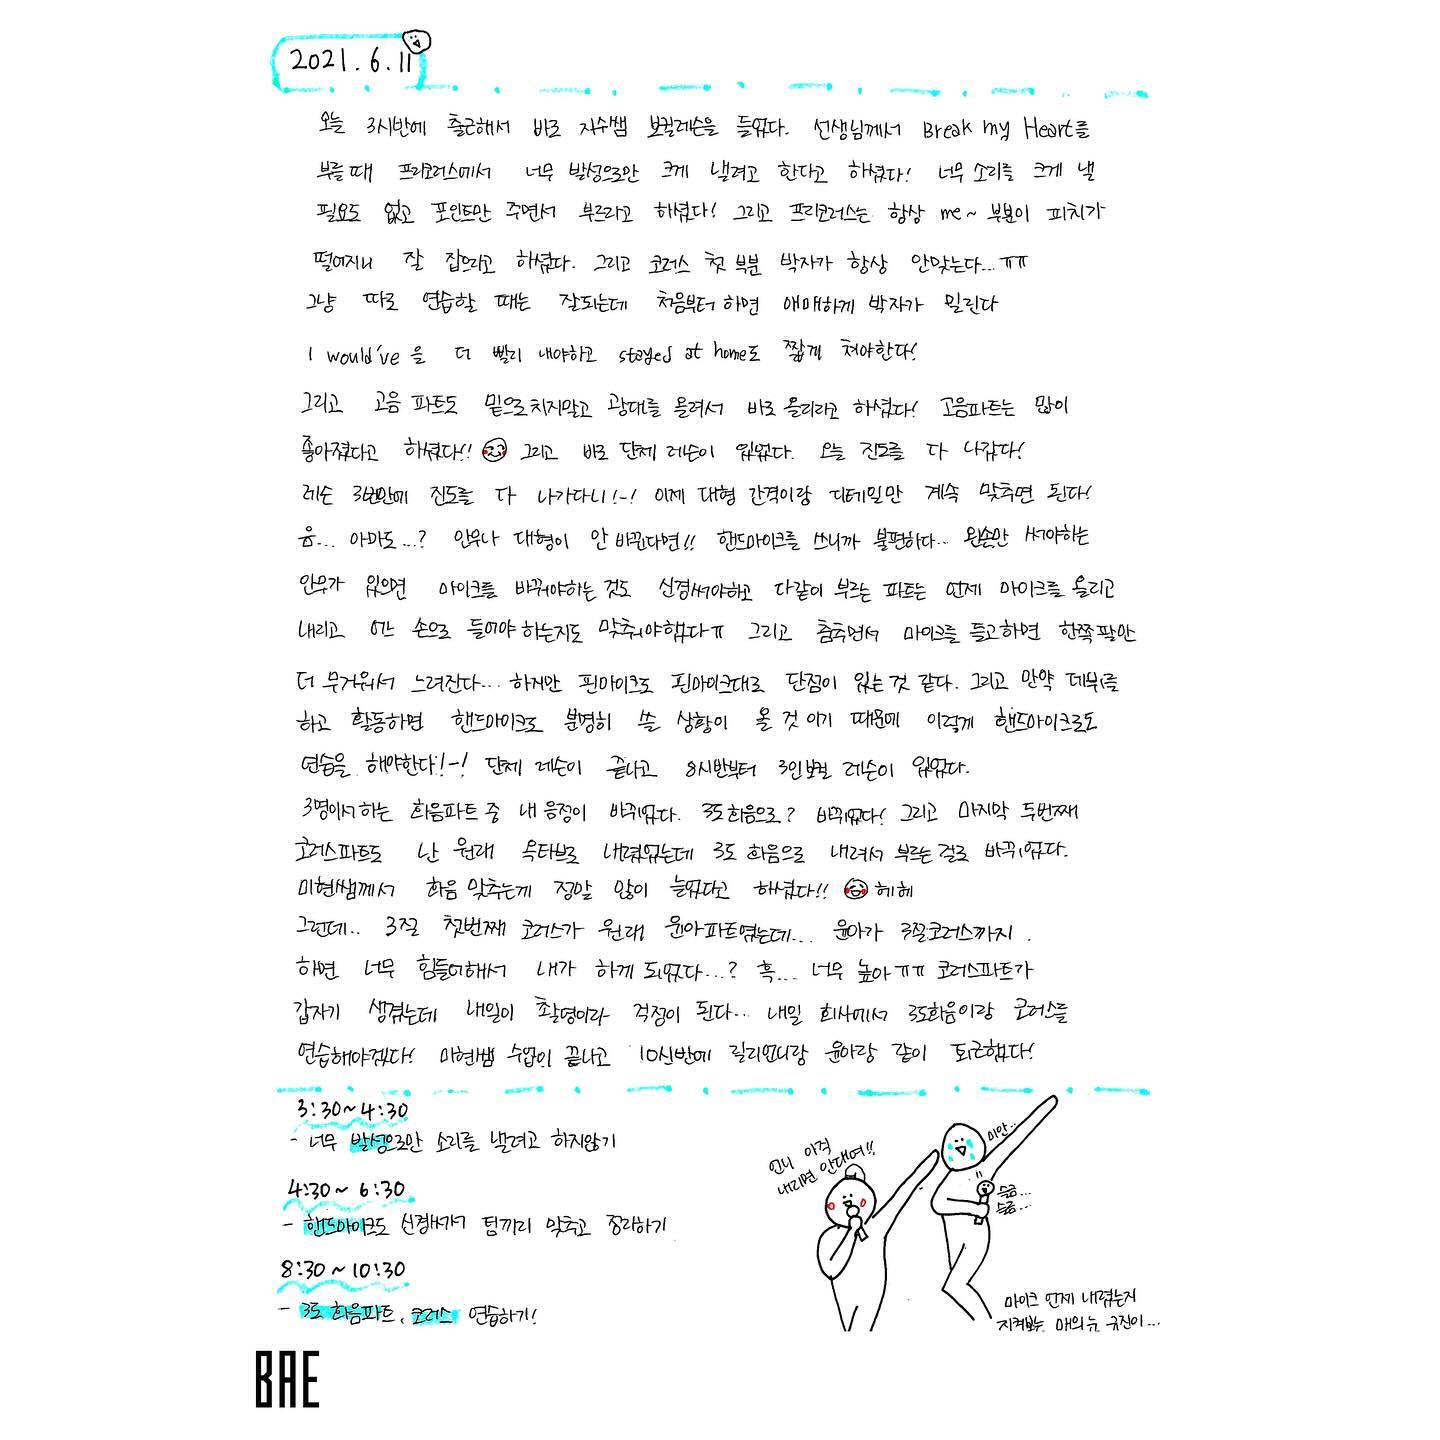 2021.6.11
오늘 3시반에 출근해서 바로 지수쌤 보컬레슨을 들었다. 선생님께서 Break my Heart를
부를 때 프리코러스에서 너무 발성으로만 크게 낼려고 한다고 하셨다! 너무 소리를 크게 낼
필요도 없고 포인트만 주면서 부르라고 하셨다! 그리고 프리코러스는 항상 me~ 부분이 피치가
떨어지니 잘 잡으라고 하셨다. 그리고 코러스 첫 부분 박자가 항상 안맞는다...ㅠㅠ
그냥 따로 연습할 때는 잘되는데 처음부터 하면 애매하게 박자가 밀린다
I would've을 더 빨리 내야하고 stayed at home도 짧게 쳐야한다!
그리고 고음 파트도 밑으로 치지말고 광대를 올려서 바로 올리라고 하셨다! 고음파트는 많이
좋아졌다고 하셨다!! 그리고 바로 단체 레슨이 있었다. 오늘 진도를 다 나갔다!
레슨 3번만에 진도를 다 나가다니!-! 이제 대형 간격이랑 디테일만 계속 맞추면 된다!
음... 아마도...? 안무나 대형이 안 바뀐다면!! 핸드마이크를 쓰니까 불편하다... 왼손만 써야하는
안무가 있으면 마이크를 바꿔야하는 것도 신경써야하고 다같이 부르는 파트는 언제 마이크를 올리고
내리고 어느 손으로 들어야 하는지도 맞춰야했다ㅠ 그리고 춤추면서 마이크를 들고하면 한쪽 팔만
더 무거워서 느려진다... 하지만 핀마이크도 핀마이크대로 단점이 있는 것 같다. 그리고 만약 데뷔를
하고 활동하면 핸드마이크로 분명히 쓸 상황이 올 것 이기 때문에 이렇게 핸드마이크로도
연습을 해야한다!-! 단체 레슨이 끝나고 8시반부터 3인보컬 레슨이 있었다.
3명이서 하는 화음파트 중 내 음정이 바뀌었다. 3도 화음으로? 바뀌었다! 그리고 마지막 두번째
코러스파트도 난 원래 옥타브로 내렸었는데 3도 화음으로 내려서 부르는 걸로 바뀌었다.
미현쌤께서 화음 맞추는게 정말 많이 늘었다고 하셨다!! 헤헤
그런데.. 3절 첫번째 코러스가 원래 윤아파트였는데... 윤아가 3절코러스까지.
하면 너무 힘들어해서 내가 하게 되었다...? 흑... 너무 높아ㅠㅠ 코러스파트가
갑자기 생겼는데 내일이 촬영이라 걱정이 된다... 내일 회사에서 3도화음이랑 코러스를
연습해야겠다! 미현쌤 수업이 끝나고 10시반에 릴리언니랑 윤아랑 같이 퇴근했다!
3:30~4:30
- 너무 발성으로만 소리를 낼려고 하지않기
4:30~6:30
- 핸드마이크도 신경써서 팀끼리 맞추고 정리하기
8:30~10:30
- 3도 화음파트, 코러스 연습하기!
언니 아직
내리면 안대여!!
미안..
슬금...
슬금...
마이크 언제 내렸는지
지켜보는 매의눈 규진이...
BAE